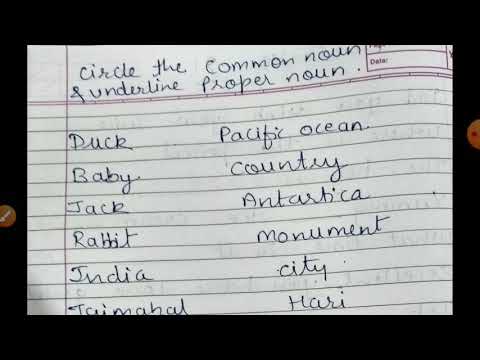 Circle the Common noun
& underline Proper noun.
Date:
Duck Pacific ocean.
Baby. Country
Jack Antartica
Rabbit Monument
India city.
Tajmahal Hari